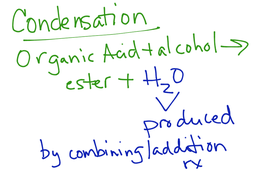 Condensation
Organic Acid + alcohol →
ester + H₂O
produced
by combining/addition
rx